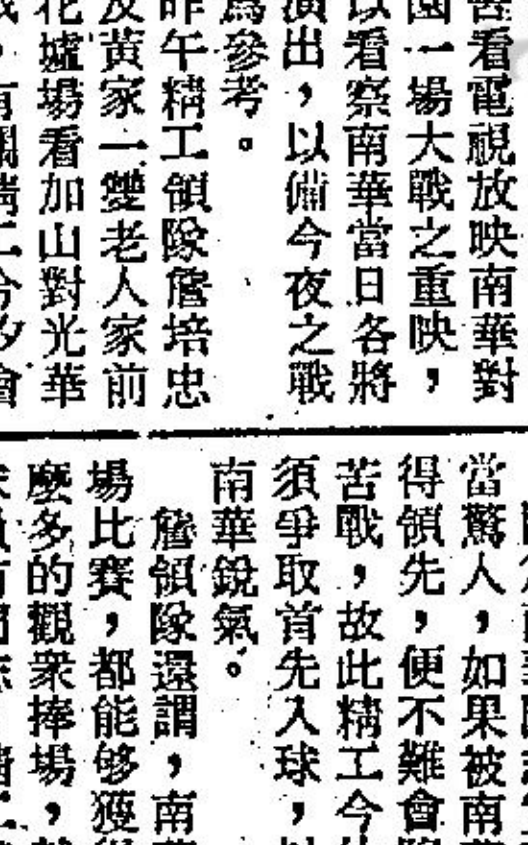 看電視放映南華對
園一場大戰之重映，
以看察南華當日各將
演出，以備今夜之戰
爲參考。
昨午精工領隊詹培忠
及黃家一雙老人家前
花墟場看加山對光華
當驚人，如果被南
得領先，便不難會
苦戰，故此精工今
須爭取首先入球，
南華銳氣。
詹領隊還謂，南
場比賽，都能够獲
麽多的觀衆捧場，